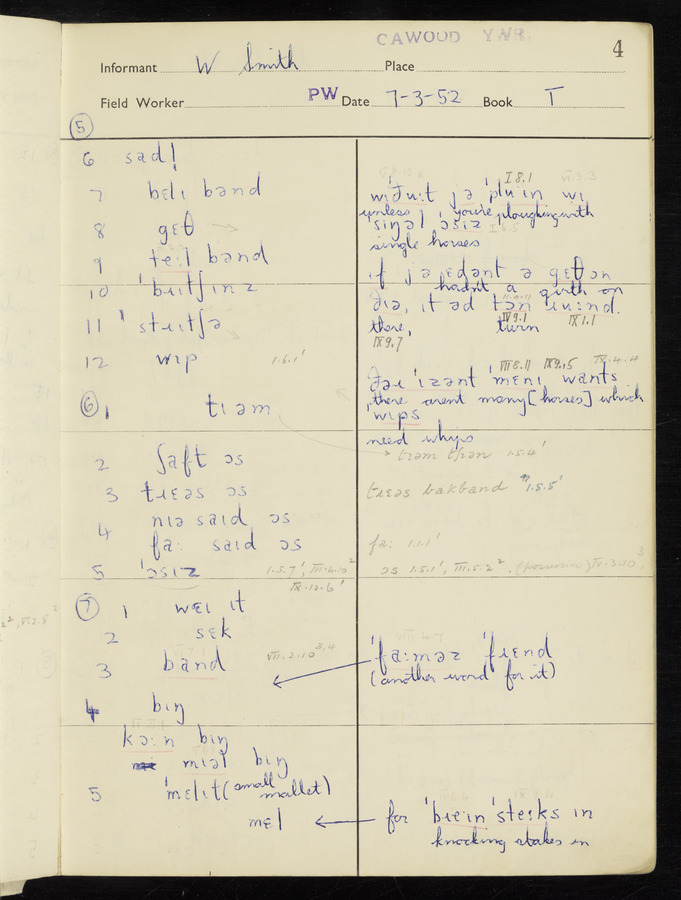 CAWOOD YWR.
4
Informant W Smith Place
Field Worker PW Date 7-3-52 Book I
5
6 sadl
7 bɛlɪ band
8 gɛθ
9 te:l band
10 'bɹɪtʃɪnz
11 'stɹɪtʃə
12 wɪp 1.6.1'
6 1 tɹam
2 ʃaft ɔs
3 tɹɛəs ɔs
4 nɪə saɪd ɔs
fa: saɪd ɔs
5 'ɔsɪz 1.5.7', III.4.10²
IX.10.6'
7 1 wɛɪ ɪt
2 sɛk
3 band VII.2.10 3,4
4 bɪŋ
kɔ:n bɪŋ
mɪəl bɪŋ
5 'mɛlɪt (small mallet)
mɛl
I 8.1 VI.3.3
unless you're ploughing with
'sɪŋəl ɔsɪz
single horses
ɪf jə ɛdənt ə gɛθ ɔn
hadn't a girth on
there, IV 9.1 turn IX 1.1
IX 9.7
VIII 8.11 IX 9.15 IX.4.4
ðəɹ 'ɪzənt 'mɛnɪ wants
there arent many [horses] which
'wɪps
need whips
tɹam than 1.5.4'
tɹɛəs bakband 1.5.5'
fa: 1.1.1'
ɔs 1.5.1', III.5.2², (possessive) IV.3.10³,
'fa:məz 'fɹɛnd
(another word for it)
for 'bɹɛɪn 'ste:ks ɪn
knocking stakes in